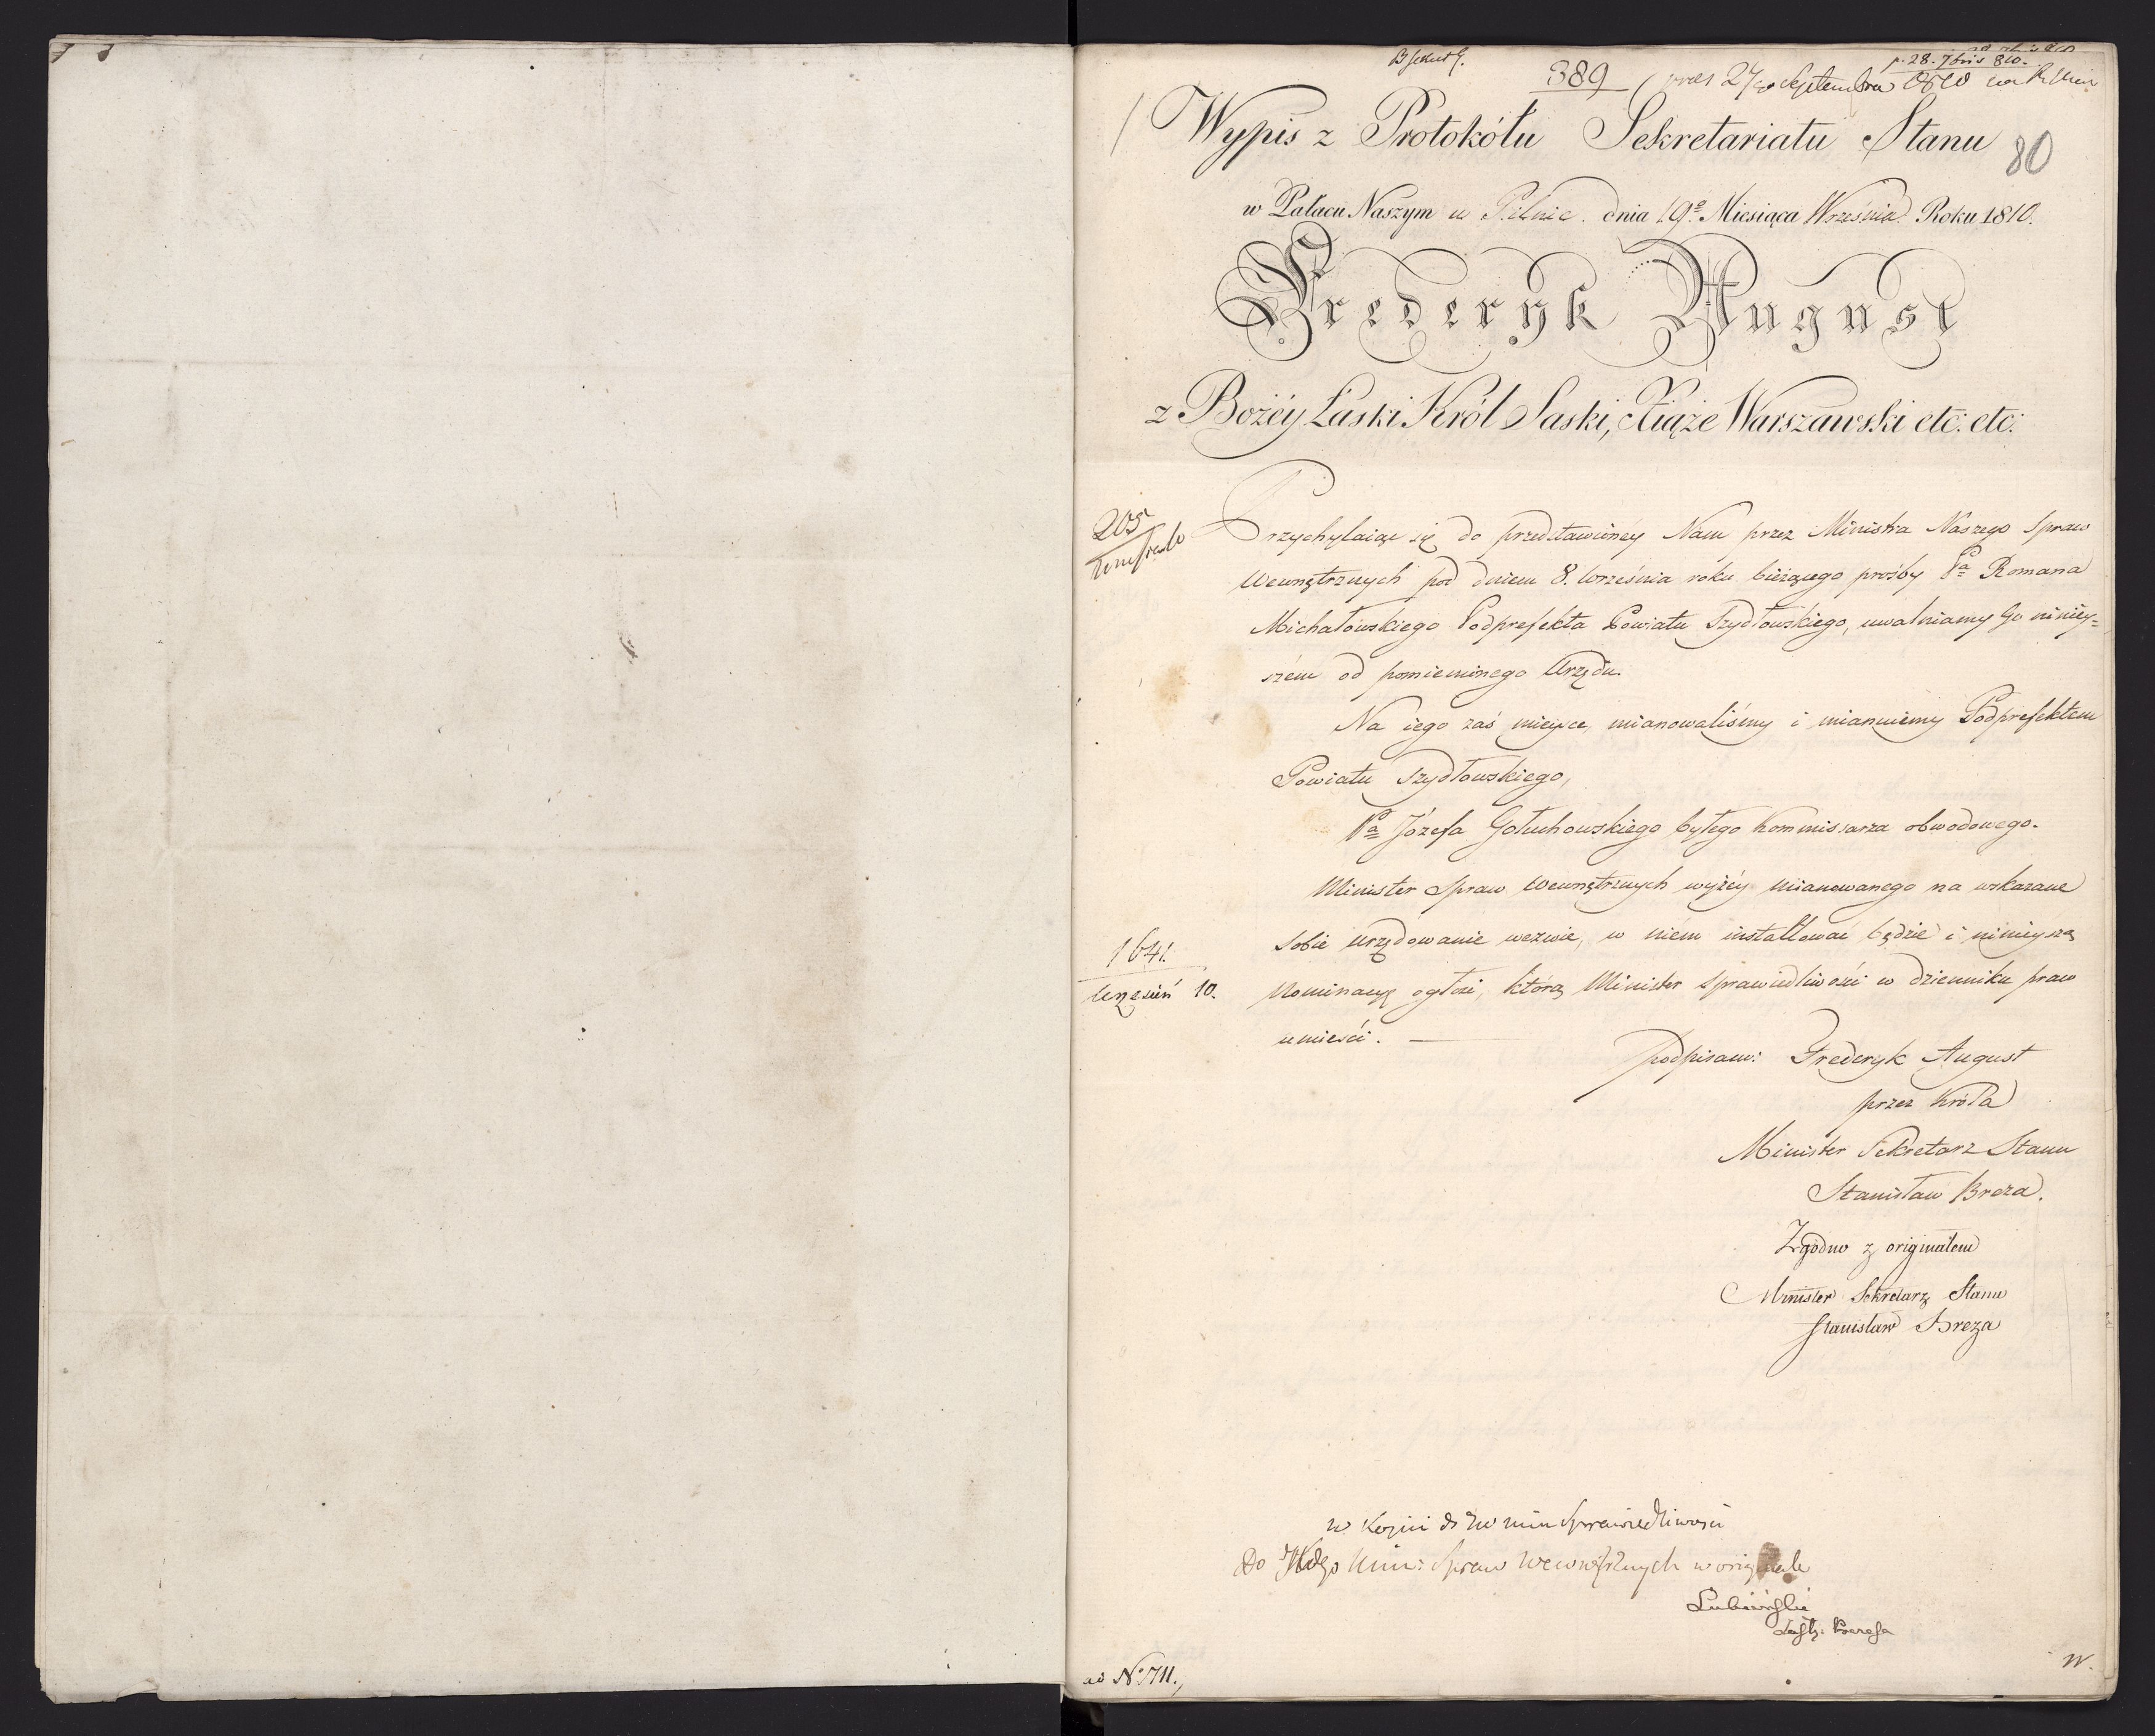 p. 28. 7bris 810.
389 27 Septembra 1810
Wypis z Protokółu Sekretariatu Stanu
80
w Pałacu Naszym w Pilnic. dnia 19º Miesiąca Września. Roku 1810.
Frederyk August
z Bożéy Łaski Król Saski, Xiąże Warszawski etc: etc:
205
Przychylaiąc się do przedstawionéy Nam przez Ministra Naszego Spraw
Wewnętrznych pod dniem 8. Września roku bieżącego prośby Pa Romana
Michałowskiego Podprefekta Powiatu Szydłowskiego, uwalniamy Go niniéy=
szém od pomienionego Urzędu.
Na iego zaś mieysce, mianowaliśmy i mianuiemy Podprefektem
Powiatu Szydłowskiego,
Pa Józefa Gołuchowskiego byłego Kommissarza obwodowego.
Minister Spraw Wewnętrznych wyżéy mianowanego na wskazane
sobie urzędowanie wezwie, w niém installować będzie i ninieyszą
1641.
Wrzesień 10.
Nominacyę ogłosi, którą Minister Sprawiedliwości w dzienniku praw
umieści.
podpisano: Frederyk August
przez Króla
Minister Sekretarz Stanu
Stanisław Breza.
Zgodno z originałem
Minister Sekretarz Stanu
Stanisław Breza
w Kopii do JW Min Sprawiedliwości
Do JWgo Min: Spraw Wewnętrznych w originale
Łubieński
Zastę. Prezesa
ad Nº 1711.
W.